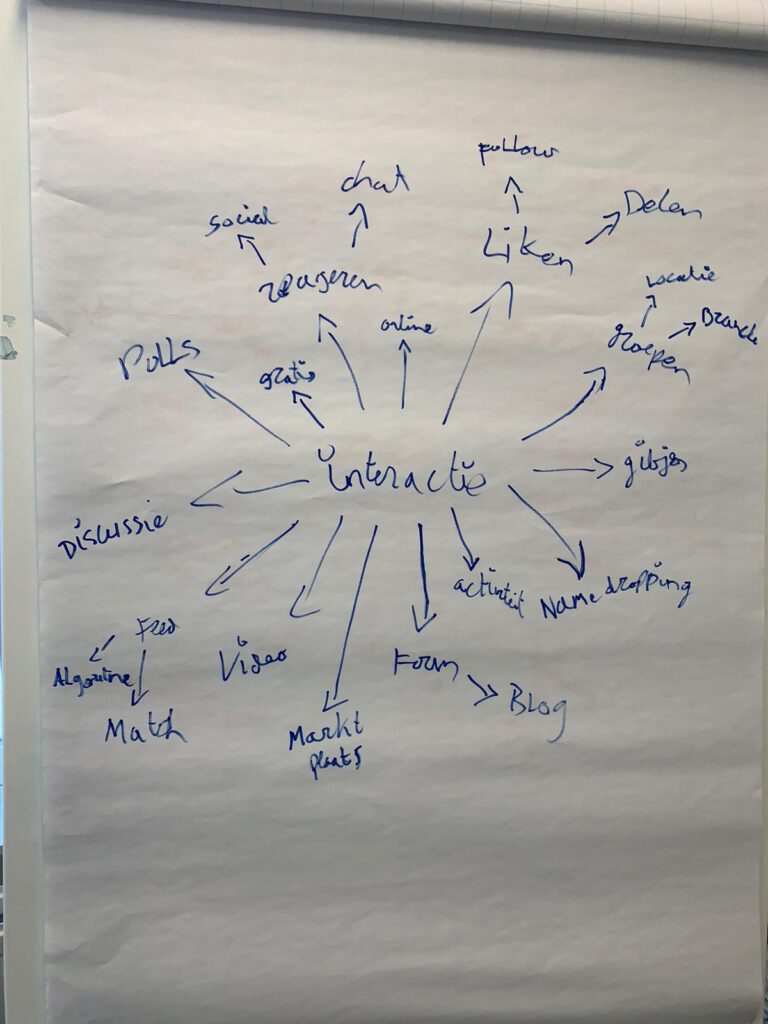 follow
chat
Delen
social
Liken
reageren
locatie
online
Branche
groepen
Polls
gratis
interactie
Discussie
activiteit
Name dropping
Feed
Video
Algoritme
Form
Blog
Match
Markt
plaats